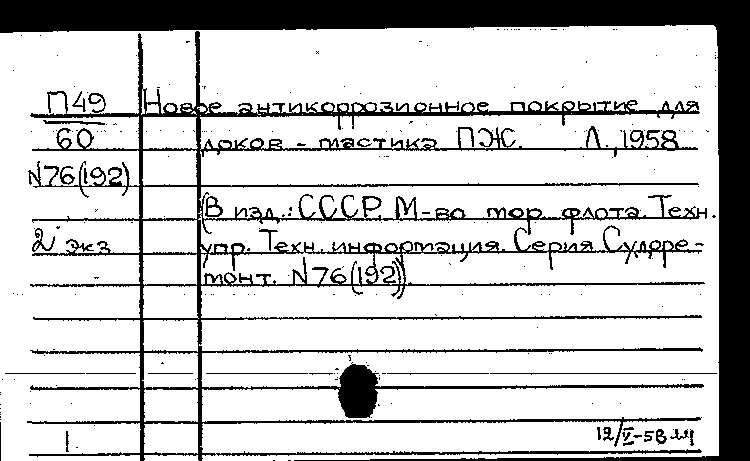 П49 Новое антикоррозионное покрытие для
60 доков - мастика ПЖ. Л., 1958
N76(192)
(В изд.: СССР. М-во мор. флота. Техн.
2 экз упр. Техн. информация. Серия Судоре-
монт. N76(192)).
1 12/V-58